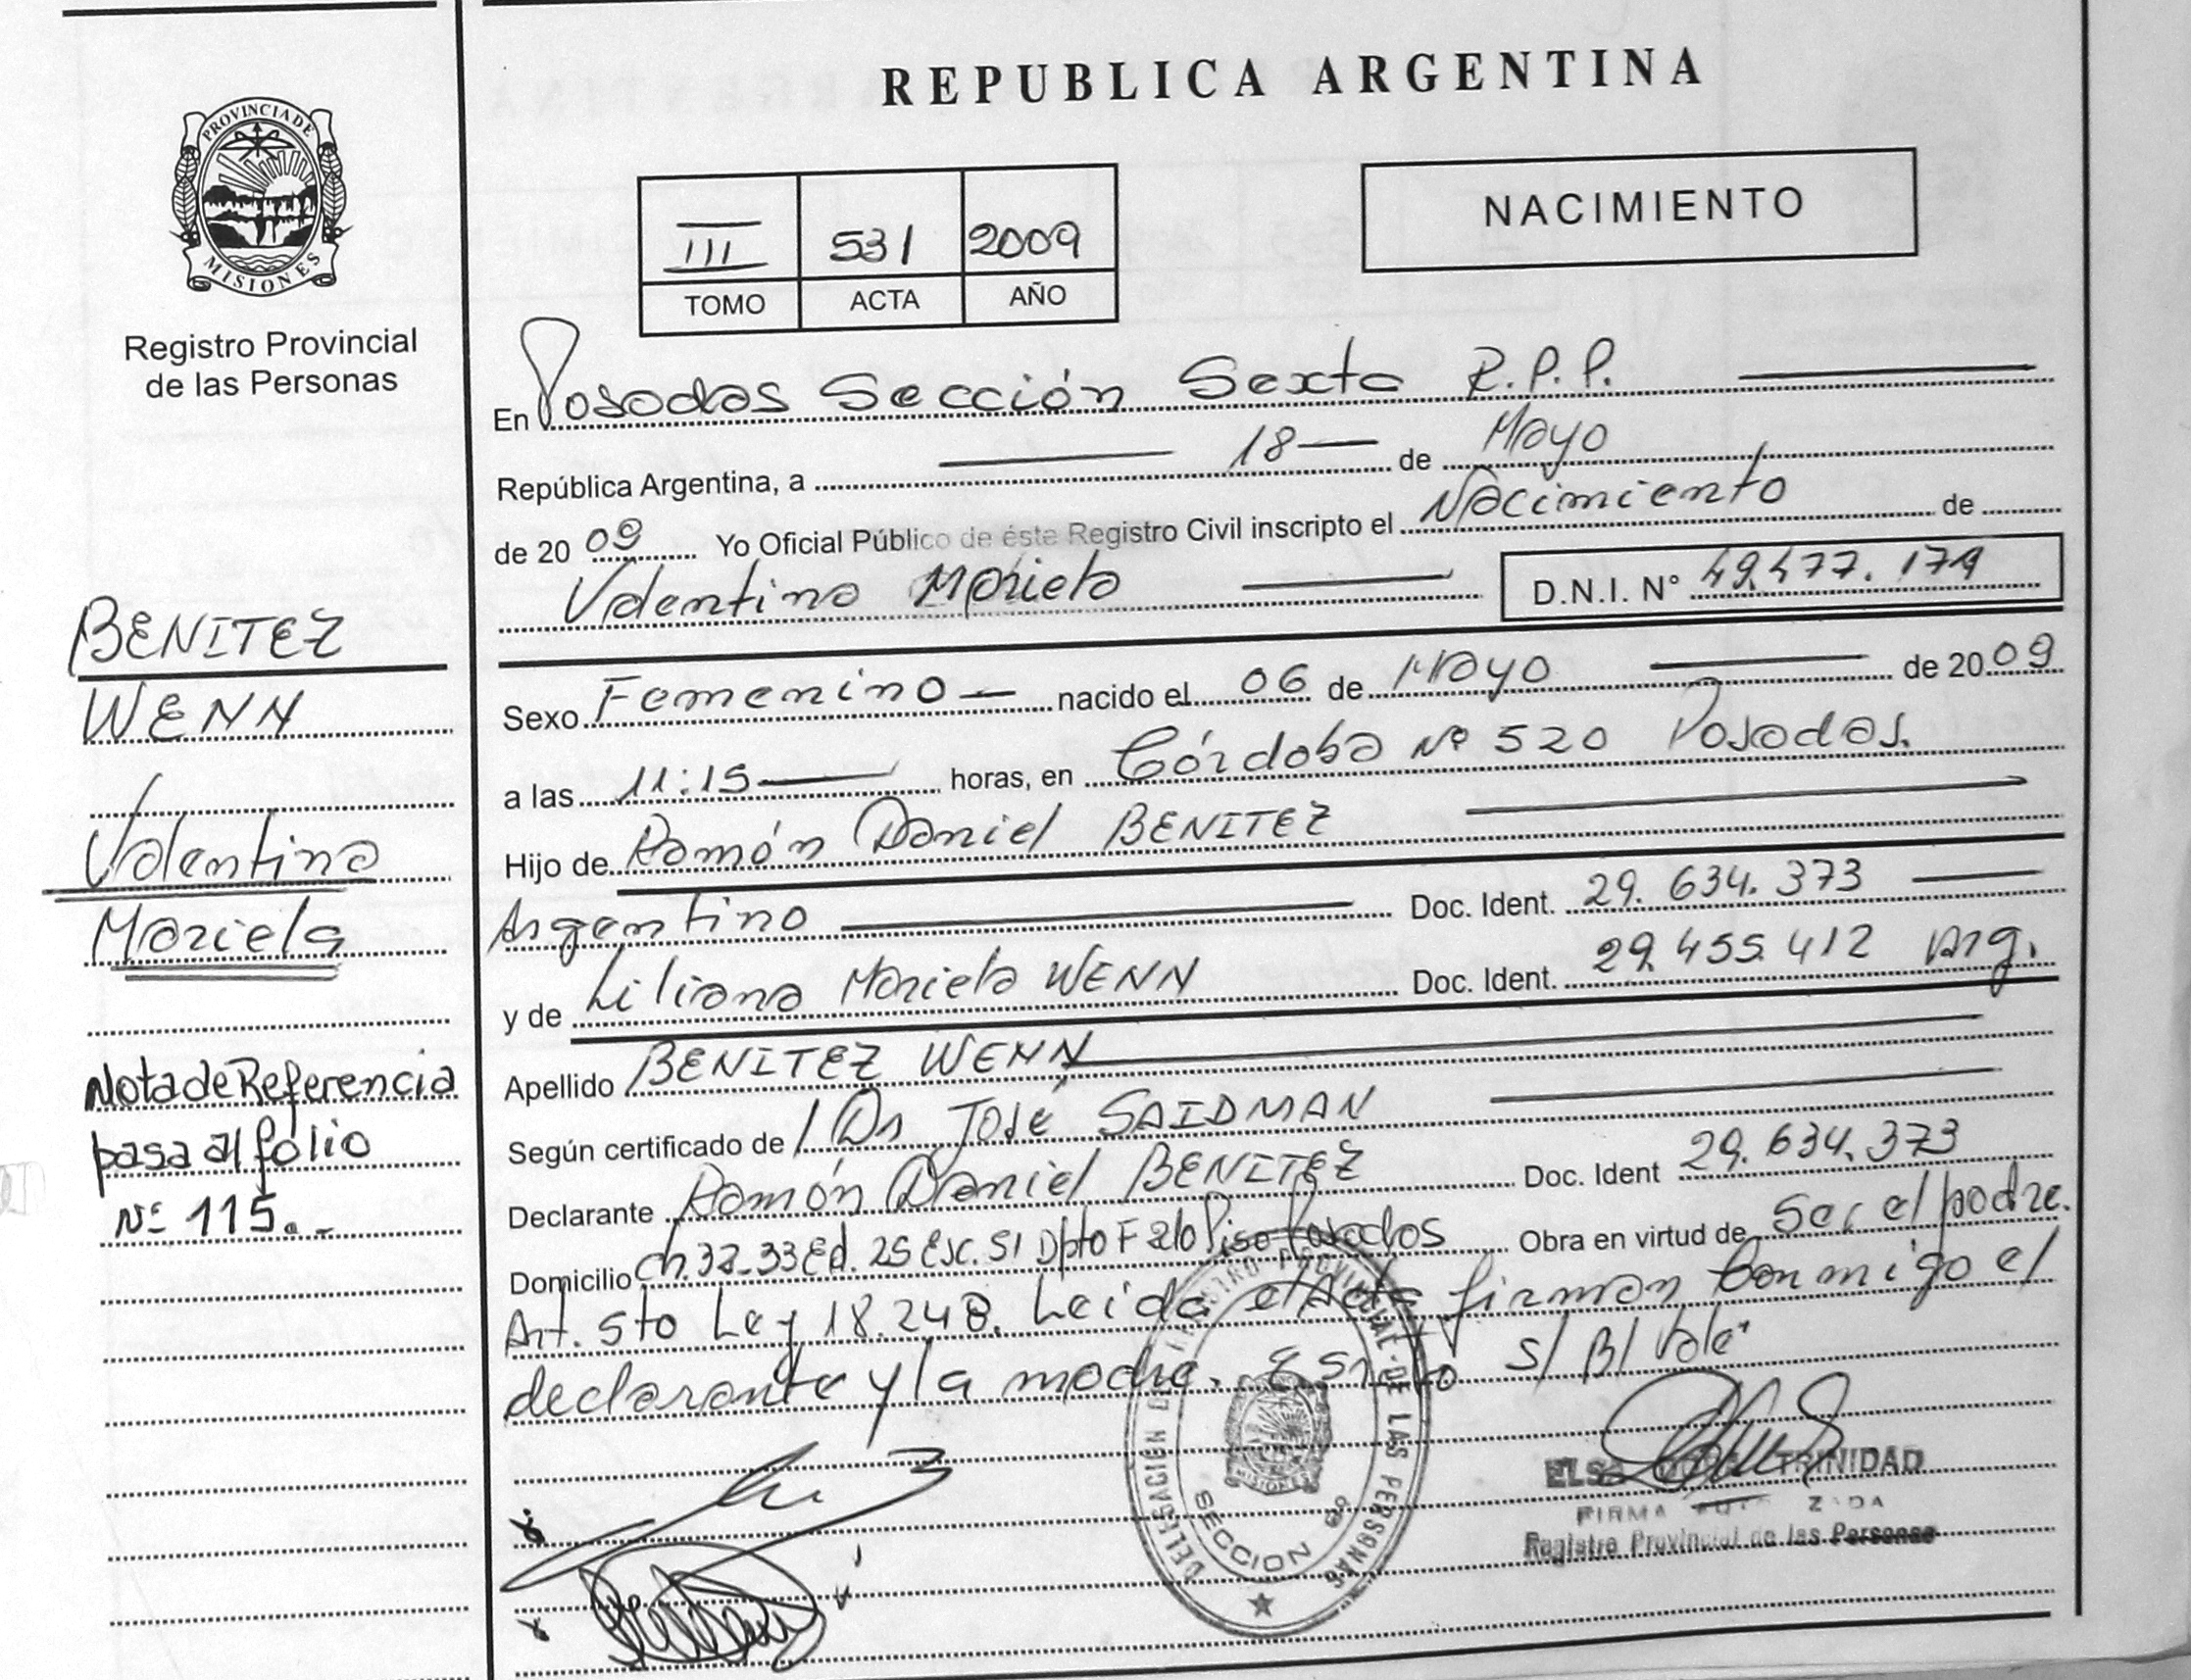 REPUBLICA ARGENTINA
PROVINCIA DE
MISIONES
Registro Provincial
de las Personas
III 531 2009
TOMO ACTA AÑO
NACIMIENTO
En Posadas Sección Sexta R.P.P.
República Argentina, a 18 de Mayo
de 2009 Yo Oficial Público de éste Registro Civil inscripto el Nacimiento de
Valentina Mariela D.N.I. N° 49.477.174
Sexo Femenino nacido el 06 de Mayo de 2009
a las 11:15 horas, en Córdoba Nº 520 Posadas.
Hijo de Ramón Daniel BENITEZ
Argentino Doc. Ident. 29.634.373
y de Liliana Mariela WENN Doc. Ident. 29.455.412 Arg.
Apellido BENITEZ WENN
Según certificado de Dr José SAIDMAN
Declarante Ramón Daniel BENITEZ Doc. Ident 29.634.373
Domicilio Ch. 32-33 Ed. 25 Esc. 51 Dpto F 2do Piso Posadas Obra en virtud de Ser el padre.
Art. 5to Ley 18.248. Leida el Acta firman conmigo el
declarante y la madre. S/ B/ Vale
BENITEZ
WENN
Valentina
Mariela
Nota de Referencia
pasa al folio
Nº 115.-
DELEGACION DEL REGISTRO PROVINCIAL DE LAS PERSONAS
MISIONES
SECCION 6ta
TRINIDAD
FIRMA
Registro Provincial de las Personas